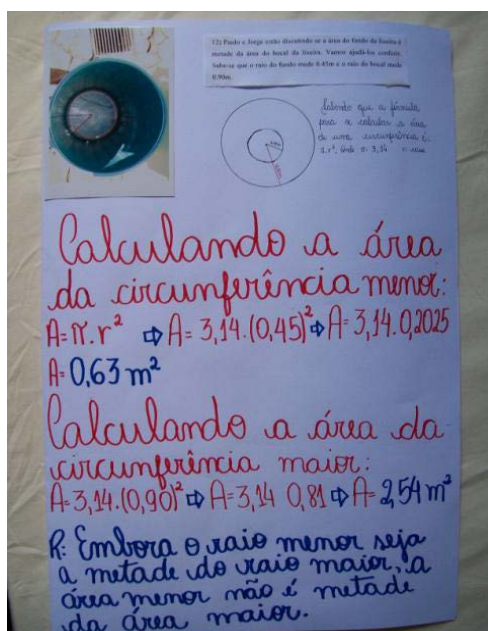 12) Paulo e Jorge estão discutindo se a área do fundo da lixeira é
metade da área do bocal da lixeira. Vamos ajudá-los
Sabe-se que o raio do fundo mede 0.45m e o raio do bocal mede
0.90m.
Sabendo que a fórmula
para se calcular a área
de uma circunferência é:
π.r², 3,14 o raio
Calculando a área
da circunferência menor:
A=π.r² ⇨ A= 3,14.(0,45)² ⇨ A= 3,14.0,2025
A= 0,63 m²
Calculando a área da
circunferência maior:
A=3,14.(0,90)² ⇨ A=3,14 0,81 ⇨ A= 2,54 m²
R: Embora o raio menor seja
a metade do raio maior, a
área menor não é metade
da área maior.